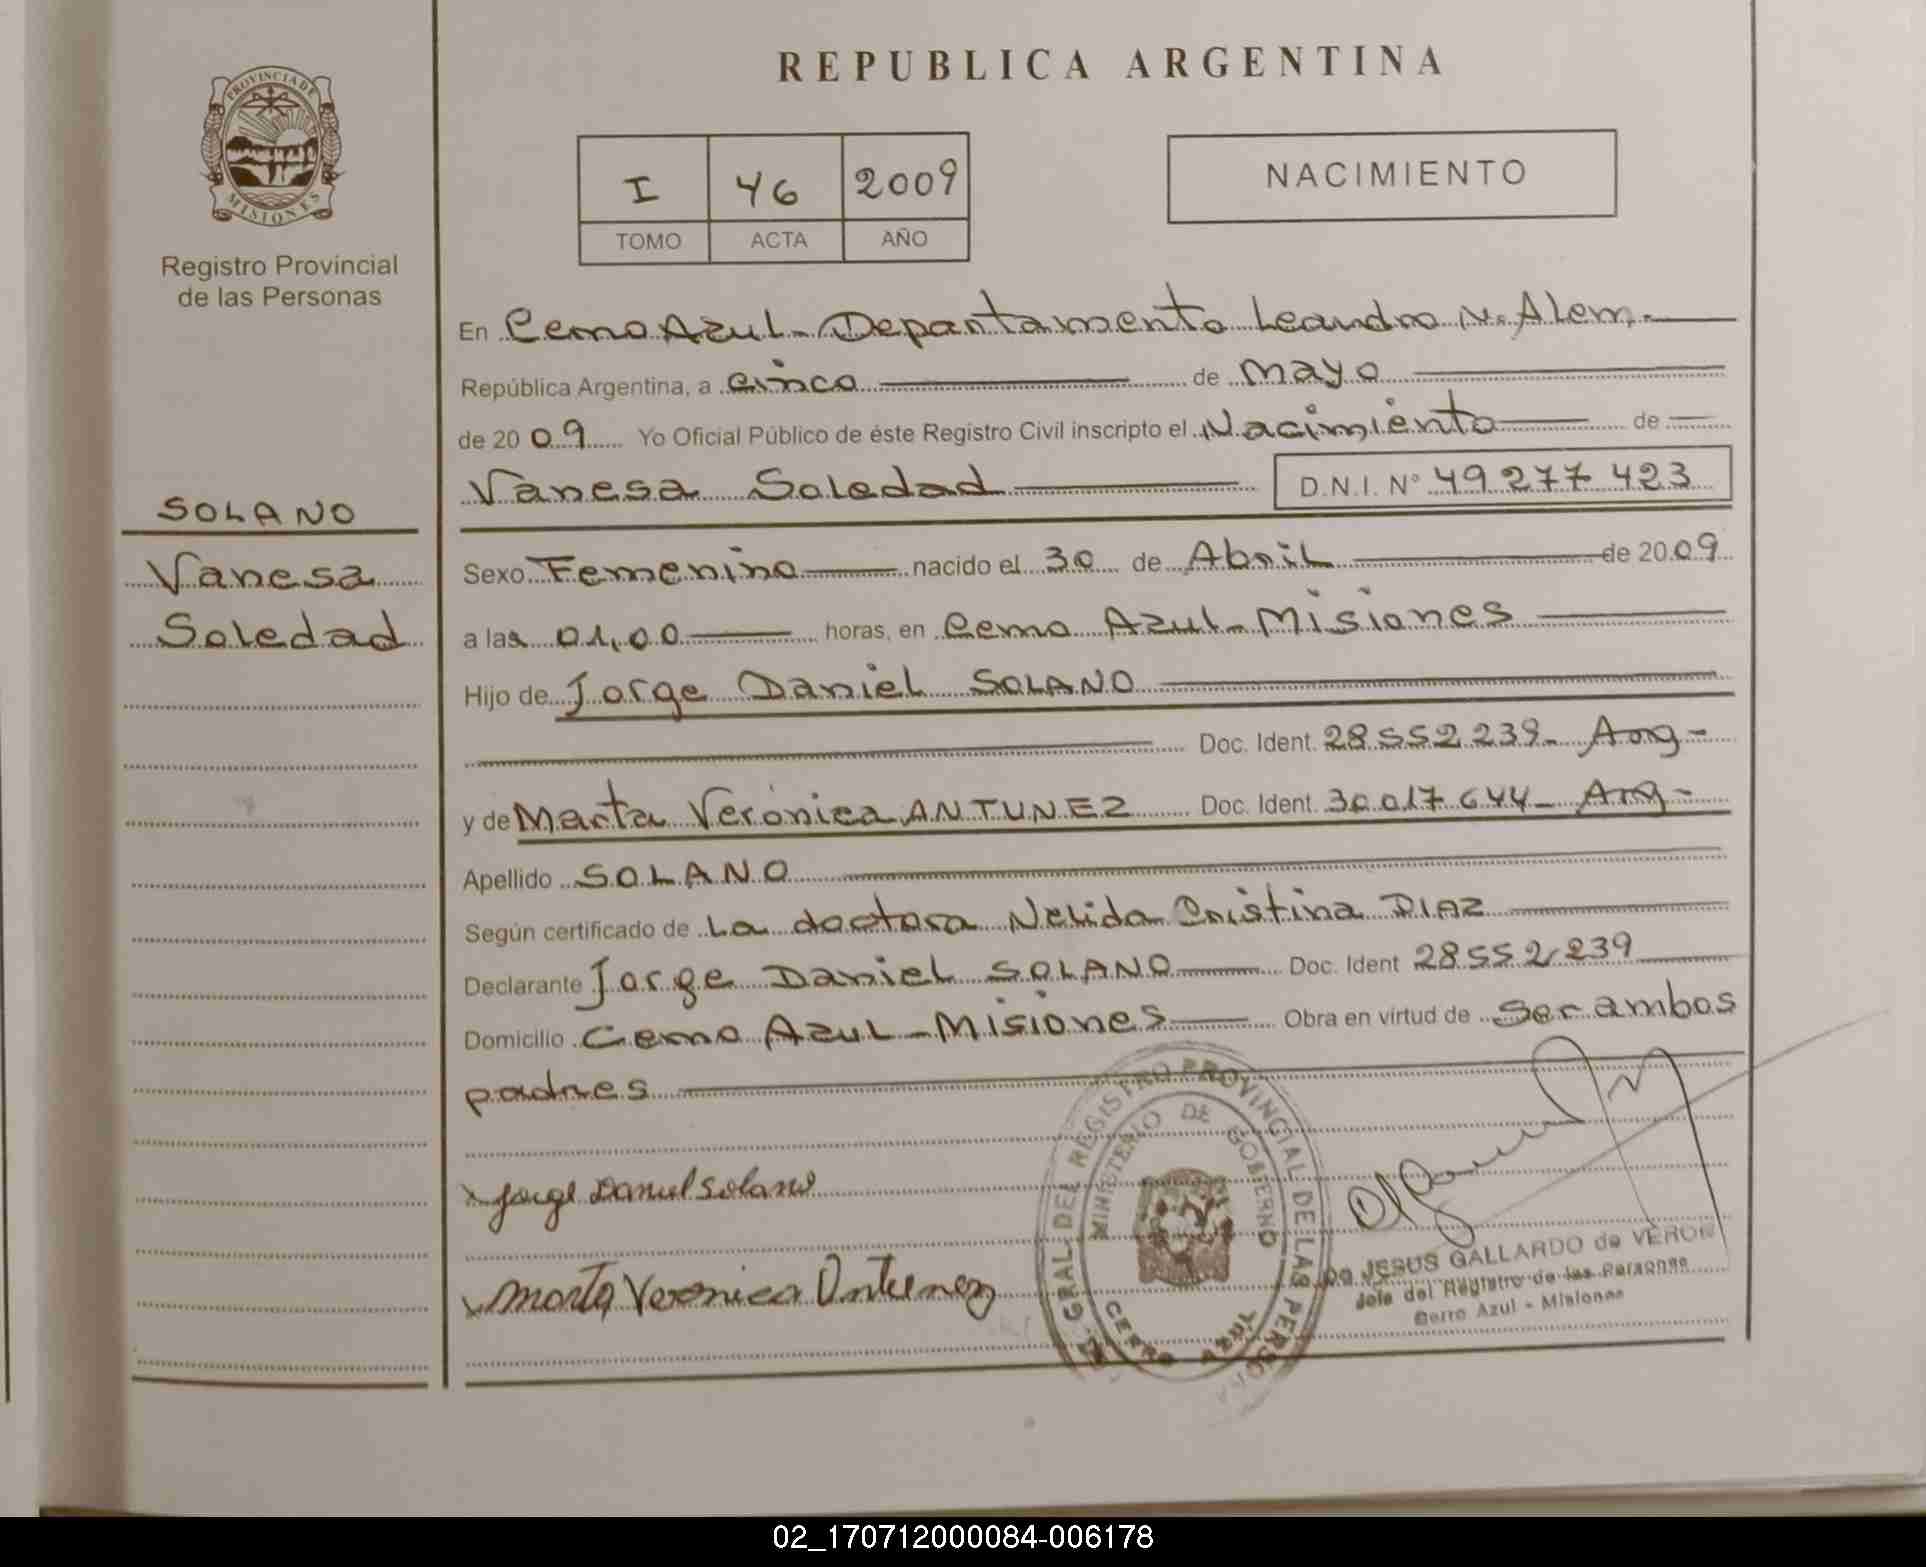 REPUBLICA ARGENTINA
PROVINCIA DE
MISIONES
Registro Provincial
de las Personas
I 46 2009
TOMO ACTA AÑO
NACIMIENTO
En Cerro Azul - Departamento Leandro N. Alem.-
República Argentina, a cinco de mayo
de 20 09 Yo Oficial Público de éste Registro Civil inscripto el Nacimiento de
Vanesa Soledad D.N.I. N° 49 277 423
SOLANO
Vanesa
Soledad
Sexo Femenino nacido el 30 de Abril de 20 09
a las 01,00 horas, en Cerro Azul - Misiones
Hijo de Jorge Daniel SOLANO
Doc. Ident. 28 552 239- Arg-
y de Marta Verónica ANTUNEZ Doc. Ident. 30 017 644- Arg-
Apellido SOLANO
Según certificado de La doctora Nelida Cristina DIAZ
Declarante Jorge Daniel SOLANO Doc. Ident 28 552 239
Domicilio Cerro Azul - Misiones Obra en virtud de ser ambos
padres
Jorge Daniel Solano
Marta Veronica Antunez
GRAL. DEL REGISTRO PROVINCIAL DE LAS PERSONAS
MINISTERIO DE GOBIERNO
CERRO AZUL
JESUS GALLARDO de VERON
Jefe del Registro de las Personas
Cerro Azul - Misiones
02_170712000084-006178